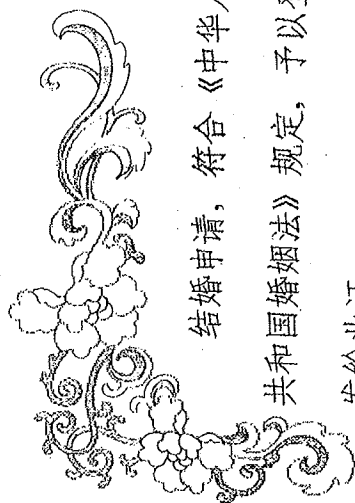 结婚申请，符合《中华人
共和国婚姻法》规定，予以
发给此证